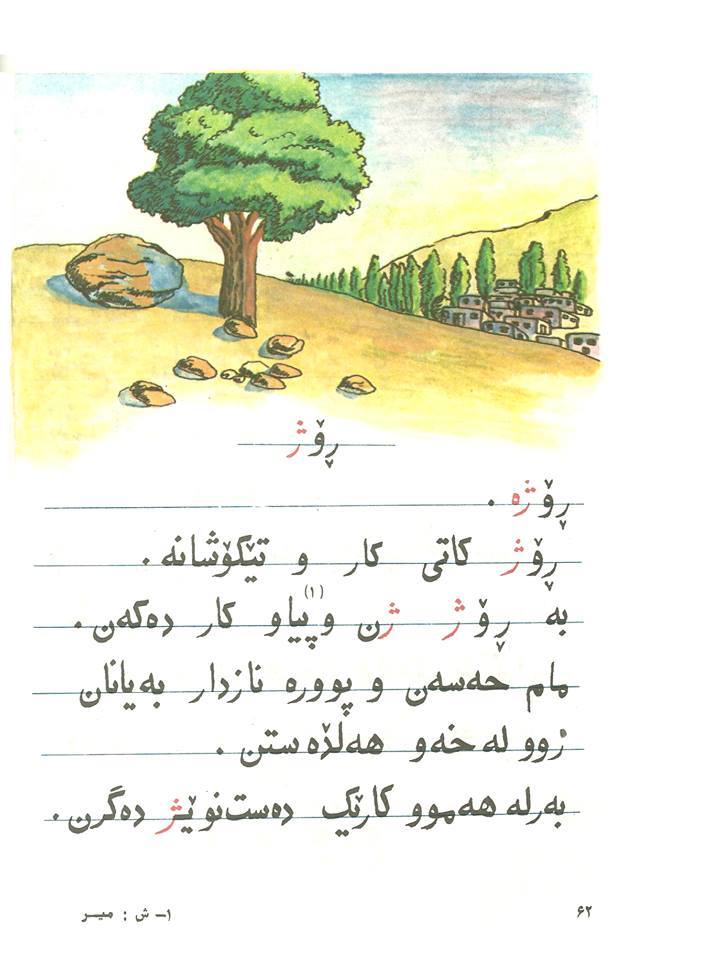 ڕۆژ
ڕۆژه .
ڕۆژ کاتی کار و تێکۆشانه .
به ڕۆژ ژن و پیاو (١) کار دەکەن .
مام حەسەن و پووره نازدار بەیانان
زوو له خەو هەڵدەستن .
بەرله هەموو کارێک دەست‌نوێژ دەگرن .
١- ش : میر
۶۲